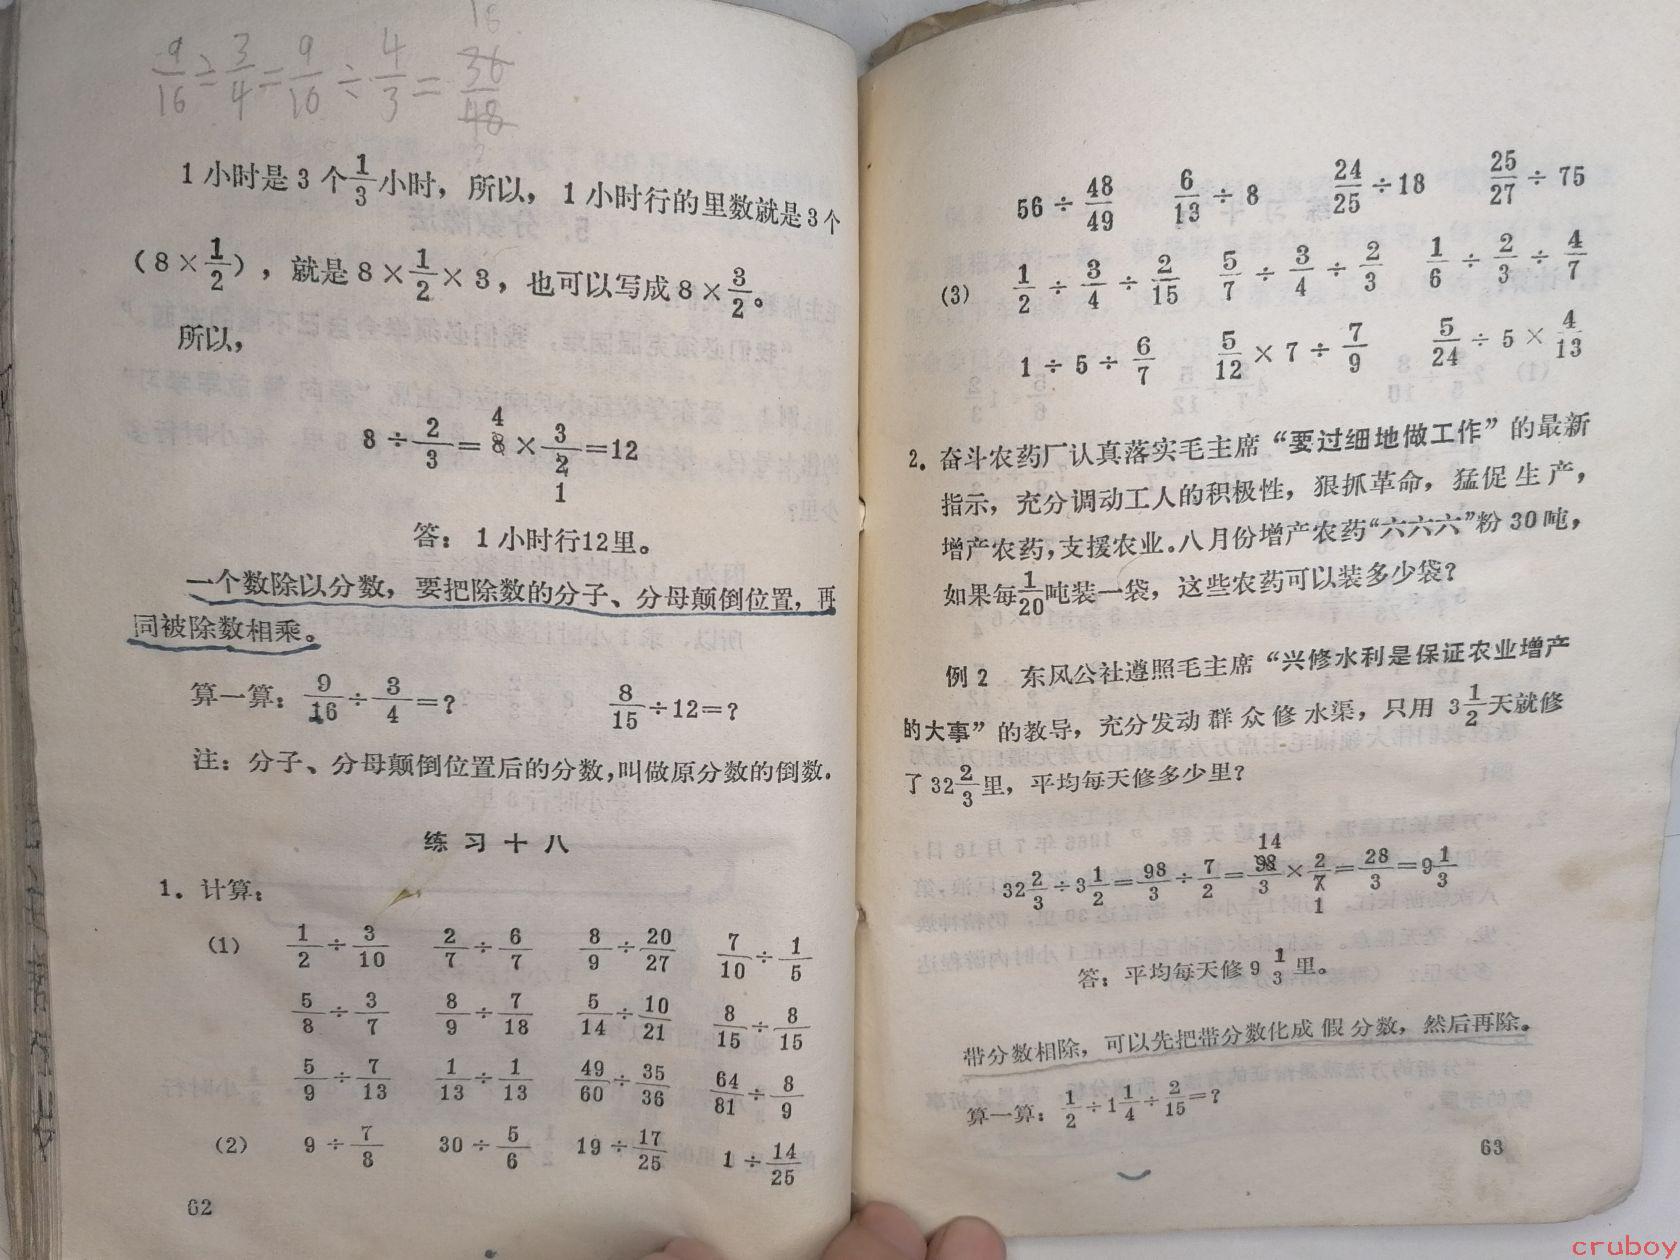 9/16 ÷ 3/4 = 9/16 ÷ 4/3 = 36/48
1小时是3个1/3小时，所以，1小时行的里数就是3个
（8×1/2），就是8×1/2×3，也可以写成8×3/2。
所以，
8÷2/3=8×3/2=12
4
1
答：1小时行12里。
一个数除以分数，要把除数的分子、分母颠倒位置，再
同被除数相乘。
算一算：9/16÷3/4=？ 8/15÷12=？
注：分子、分母颠倒位置后的分数，叫做原分数的倒数.
练习十八
1．计算：
（1） 1/2÷3/10 2/7÷6/7 8/9÷20/27 7/10÷1/5
5/8÷3/7 8/9÷7/18 5/14÷10/21 8/15÷8/15
5/9÷7/13 1/13÷1/13 49/60÷35/36 64/81÷8/9
（2） 9÷7/8 30÷5/6 19÷17/25 1÷14/25
62
56÷48/49 6/13÷8 24/25÷18 25/27÷75
（3） 1/2÷3/4÷2/15 5/7÷3/4÷2/3 1/6÷2/3÷4/7
1÷5÷6/7 5/12×7÷7/9 5/24÷5×4/13
2．奋斗农药厂认真落实毛主席“要过细地做工作”的最新
指示，充分调动工人的积极性，狠抓革命，猛促生产，
增产农药，支援农业。八月份增产农药“六六六”粉30吨，
如果每1/20吨装一袋，这些农药可以装多少袋？
例2 东风公社遵照毛主席“兴修水利是保证农业增产
的大事”的教导，充分发动群众修水渠，只用3 1/2天就修
了32 2/3里，平均每天修多少里？
14
32 2/3÷3 1/2=98/3÷7/2=98/3×2/7=28/3=9 1/3
1
答：平均每天修9 1/3里。
带分数相除，可以先把带分数化成假分数，然后再除。
算一算：1/2÷1 1/4÷2/15=？
63
cruboy